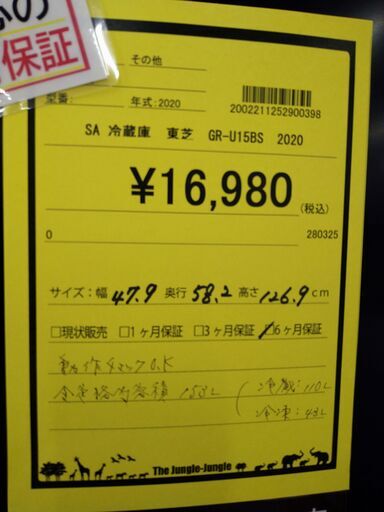 心の
保証
その他
型番:
年式:2020
2002211252900398
SA 冷蔵庫 東芝 GR-U15BS 2020
¥16,980(税込)
0 280325
サイズ:幅 47.9 奥行 58.2 高さ 126.9 cm
□現状販売 □1ヶ月保証 □3ヶ月保証 ☑6ヶ月保証
動作チェックO.K
全定格内容積 153L (冷蔵:110L
冷凍:43L
The Jungle-Jungle